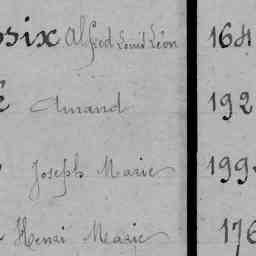 osix Alfred Louis Léon 164
é Amand 192
Joseph Marie 199
Henri Marie 176